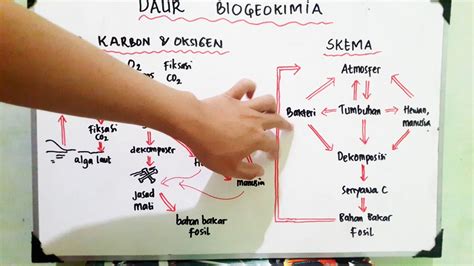 DAUR BIOGEOKIMIA
KARBON & OKSIGEN
O2
Fiksasi
CO2
Fiksasi
CO2
alga laut
dekomposer
Jasad
Mati
bahan bakar
fosil
manusia
SKEMA
Atmosfer
Bakteri
Tumbuhan
Hewan,
manusia
Dekomposisi
Senyawa C
Bahan Bakar
fosil